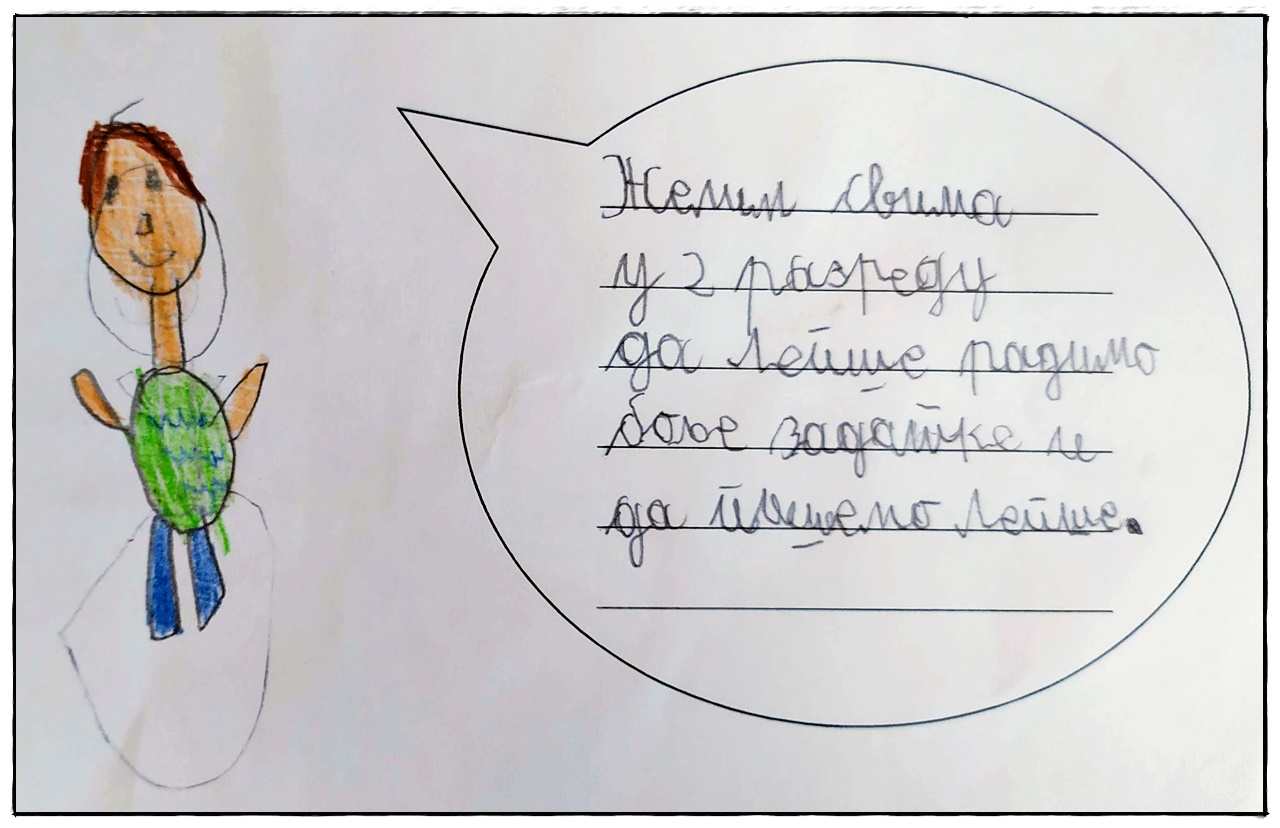 Желим свима
у 2 разреду
да лепше радимо
боље задатке и
да пишемо лепше.